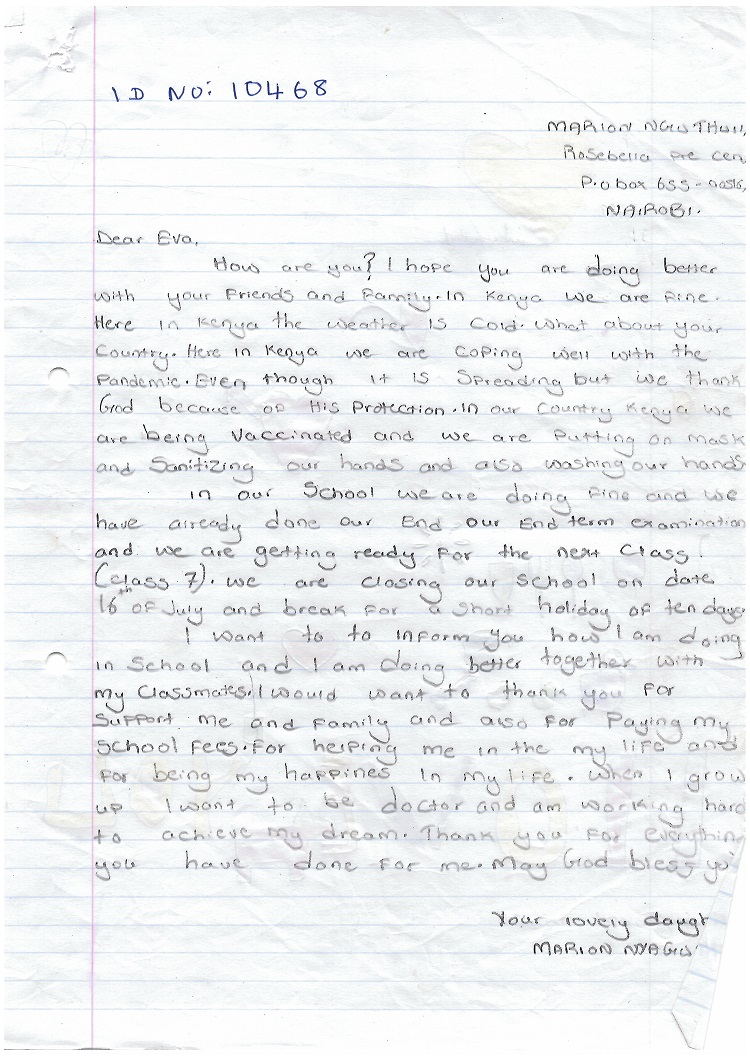 ID NO: 10468
MARION
Rosebella Pre Cen
P.o box 655 -
NAIROBI.
Dear Eva,
How are you? I hope you are doing better
with your Friends and Family. In Kenya we are Fine.
Here in Kenya the weather is Cold. What about your
Country. Here in Kenya we are Coping well with the
Pandemic. Even though it is Spreading but we thank
God because of His Protection. In our Country Kenya we
are being Vaccinated and we are Putting on mask
and Sanitizing our hands and also washing our hands
In our School we are doing Fine and we
have already done our End our End term examination
and we are getting ready For the next Class
(Class 7). We are closing our School on date
16th of July and break For a short holiday of ten days
I want to to inform you how I am doing
in School and I am doing better together with
my Classmates. I would want to thank you For
Support me and Family and also For Paying my
School Fees. For helping me in the my life and
For being my happines In my life. When I grow
up I want to be doctor and am working hard
to achieve my dream. Thank you For everything
you have done For me. May God bless yo
Your lovely daugt
MARION